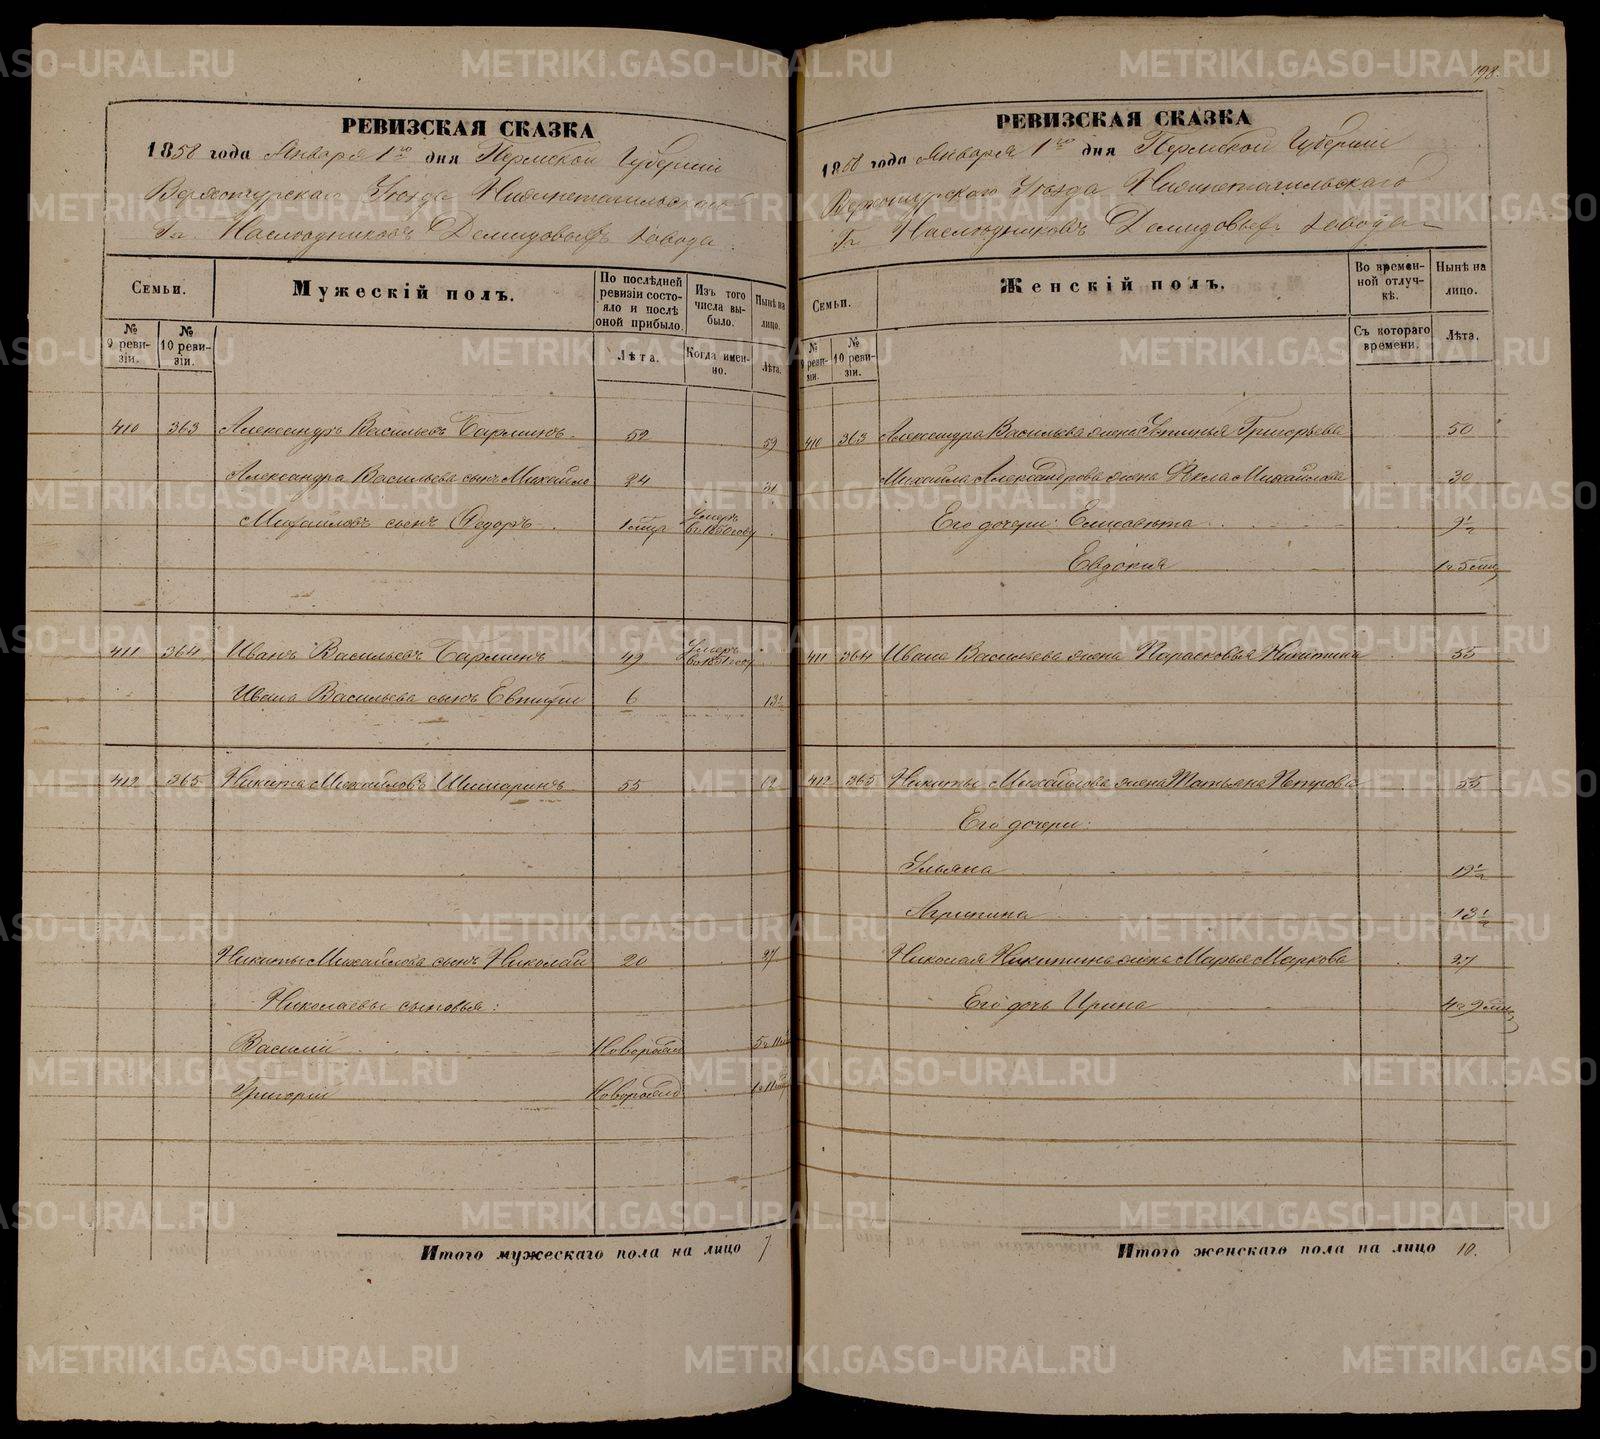 198.
РЕВИЗСКАЯ СКАЗКА
1858 года Января 1го дня Пермской Губернiи
Верхотурскаго Уѣзда Нижнетагильскаго
Гг. Наслѣдниковъ Демидовыхъ завода
Семьи.
Мужескiй полъ.
По послѣдней ревизiи состояло и послѣ оной прибыло.
Изъ того числа выбыло.
Нынѣ на лицо.
№ 9 ревизiи.
№ 10 ревизiи.
Лѣта.
Когда именно.
Лѣта.
410 363 Александръ Васильевъ 52 59
Александра Васильева сынъ Михайло 24 31
Михайловъ сынъ Ѳедоръ 1 мца Умеръ въ 1850 году
411 364 Иванъ Васильевъ 49 Умеръ въ 1851 году
Ивана Васильева сынъ 6 13½
412 365 Никита Михайловъ 55 62
Никиты Михайлова сынъ Николай 20 27
Николаевы сыновья:
Василiй Новорожд
Григорiй Новорожд
Итого мужескаго пола на лицо 7
РЕВИЗСКАЯ СКАЗКА
1858 года Января 1го дня Пермской Губернiи
Верхотурскаго Уѣзда Нижнетагильскаго
Гг. Наслѣдниковъ Демидовыхъ завода
Семьи.
Женскiй полъ.
Во временной отлучкѣ.
Нынѣ на лицо.
№ 9 ревизiи.
№ 10 ревизiи.
Съ котораго времени.
Лѣта.
410 363 Александра Васильева жена Григорьева 50
Михайла Александрова жена Ѳекла Михайлова 30
Его дочери: Елисавета 9½
Евдокия 1 г 5 мц
411 364 Ивана Васильева жена Парасковья Никитина 55
412 365 Никиты Михайлова жена Татьяна Петрова 55
Его дочери:
Ульяна
Агрипина 13½
Николая Никитина жена Марья Маркова 27
Его дочь Ирина 4 г 9 мц
Итого женскаго пола на лицо 10.
METRIKI.GASO-URAL.RU